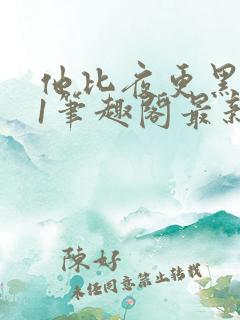 他比夜更黑
1笔趣阁最新
陳好
未经同意禁止转载